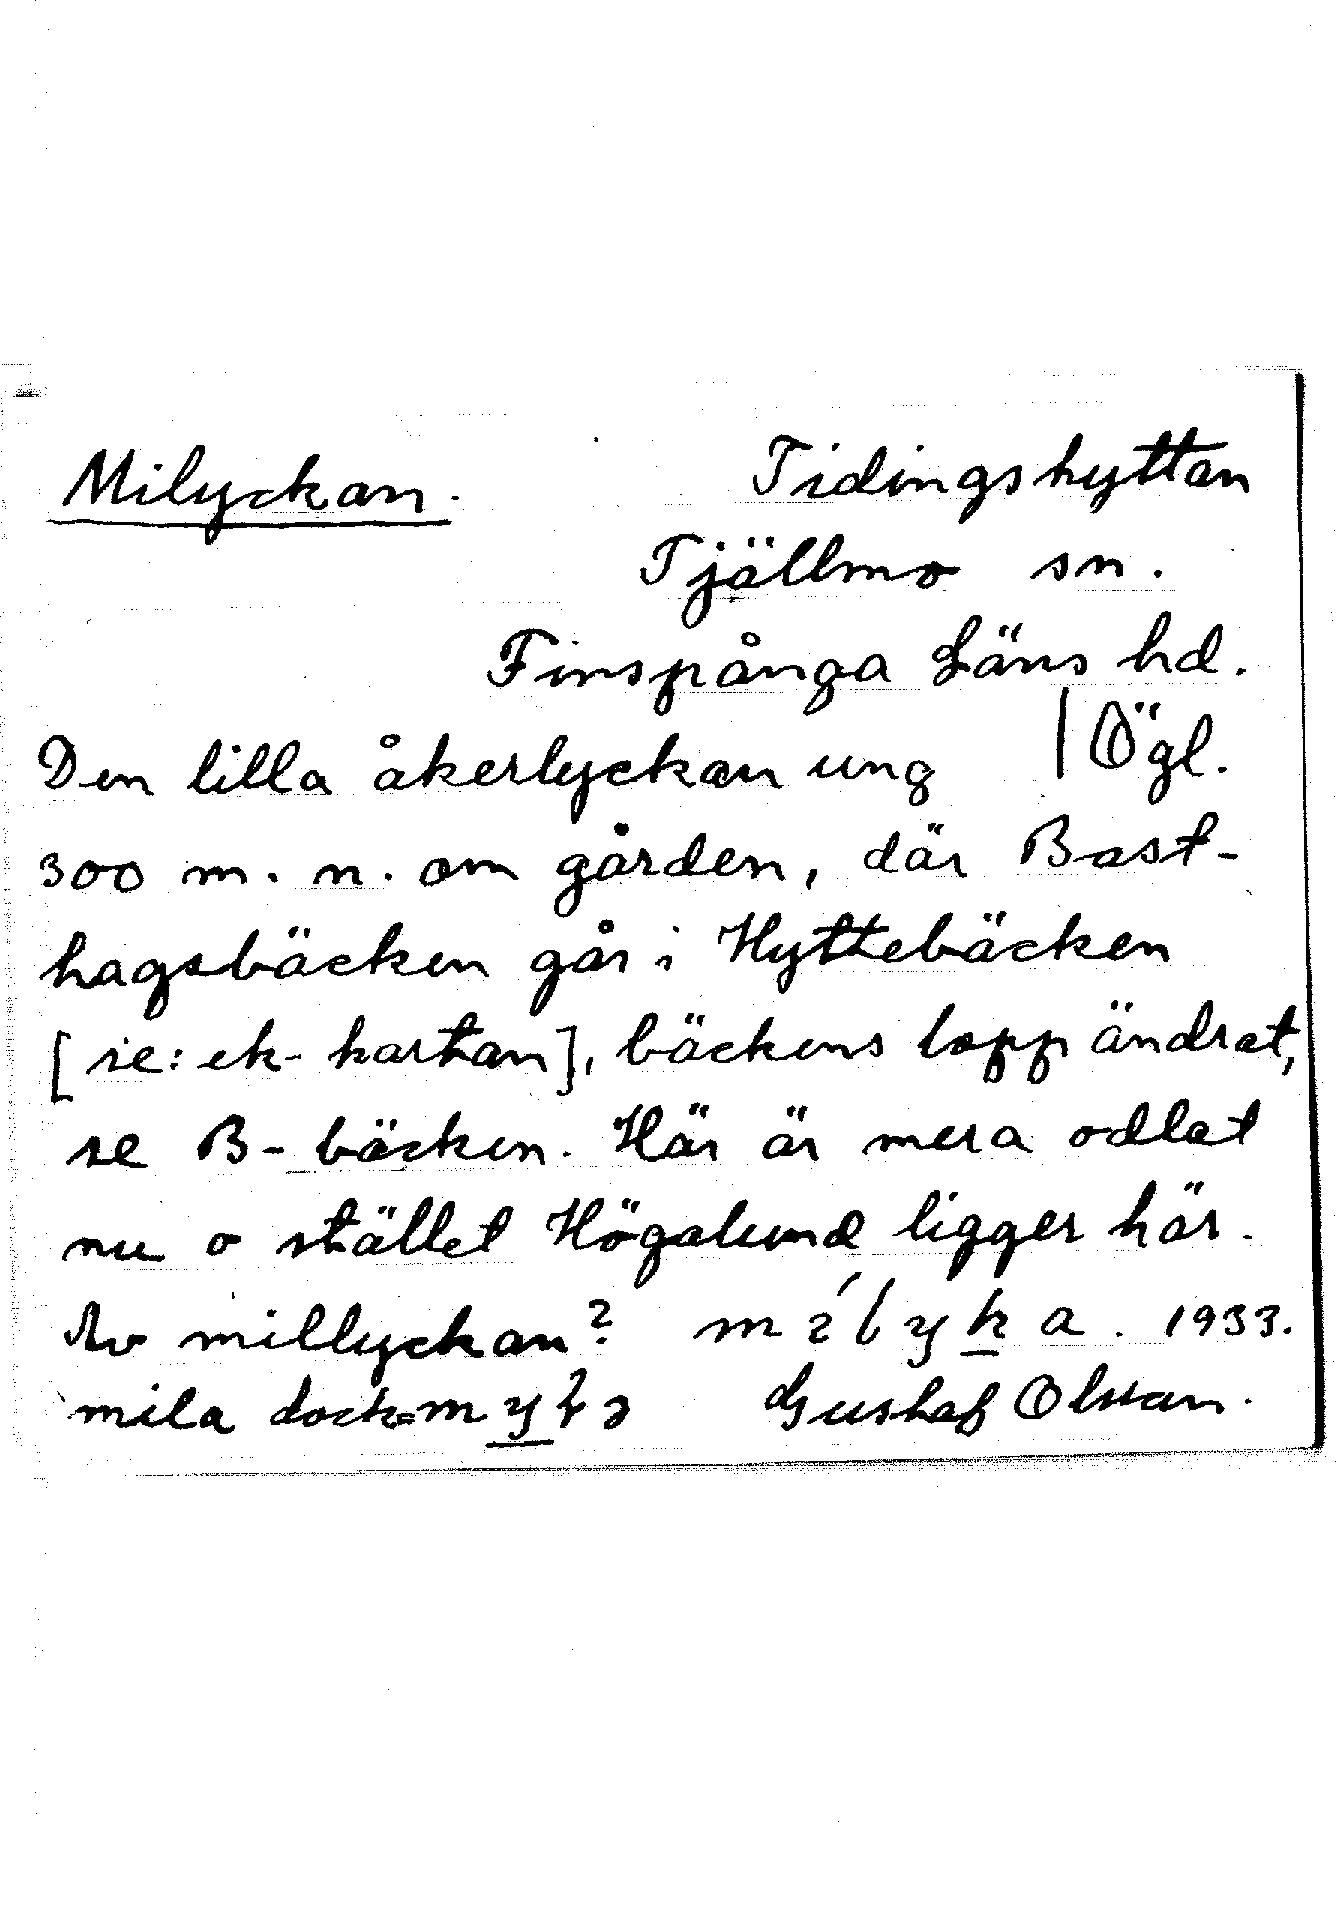 Milyckan. Tidingshyttan
Tjällmo sn.
Finspånga Läns hd.
Den lilla åkerlyckan ung | Ögl.
300 m. n. om gården, där Bast-
hagsbäcken går i Hyttebäcken
[se: ek-kartan], bäckens lopp ändrat,
se B-bäcken. Här är mera odlat
nu o stället Högalund ligger här.
Av millyckan? 1933.
mila dock= Gustaf Olsson.